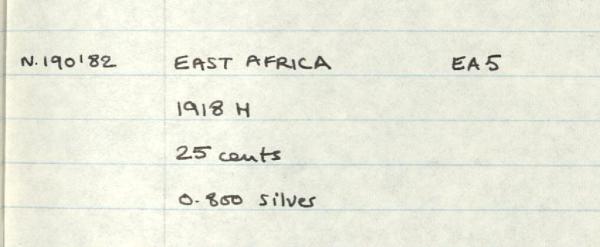 N.190182 EAST AFRICA EA5
1918 H
25 cents
0.800 silver